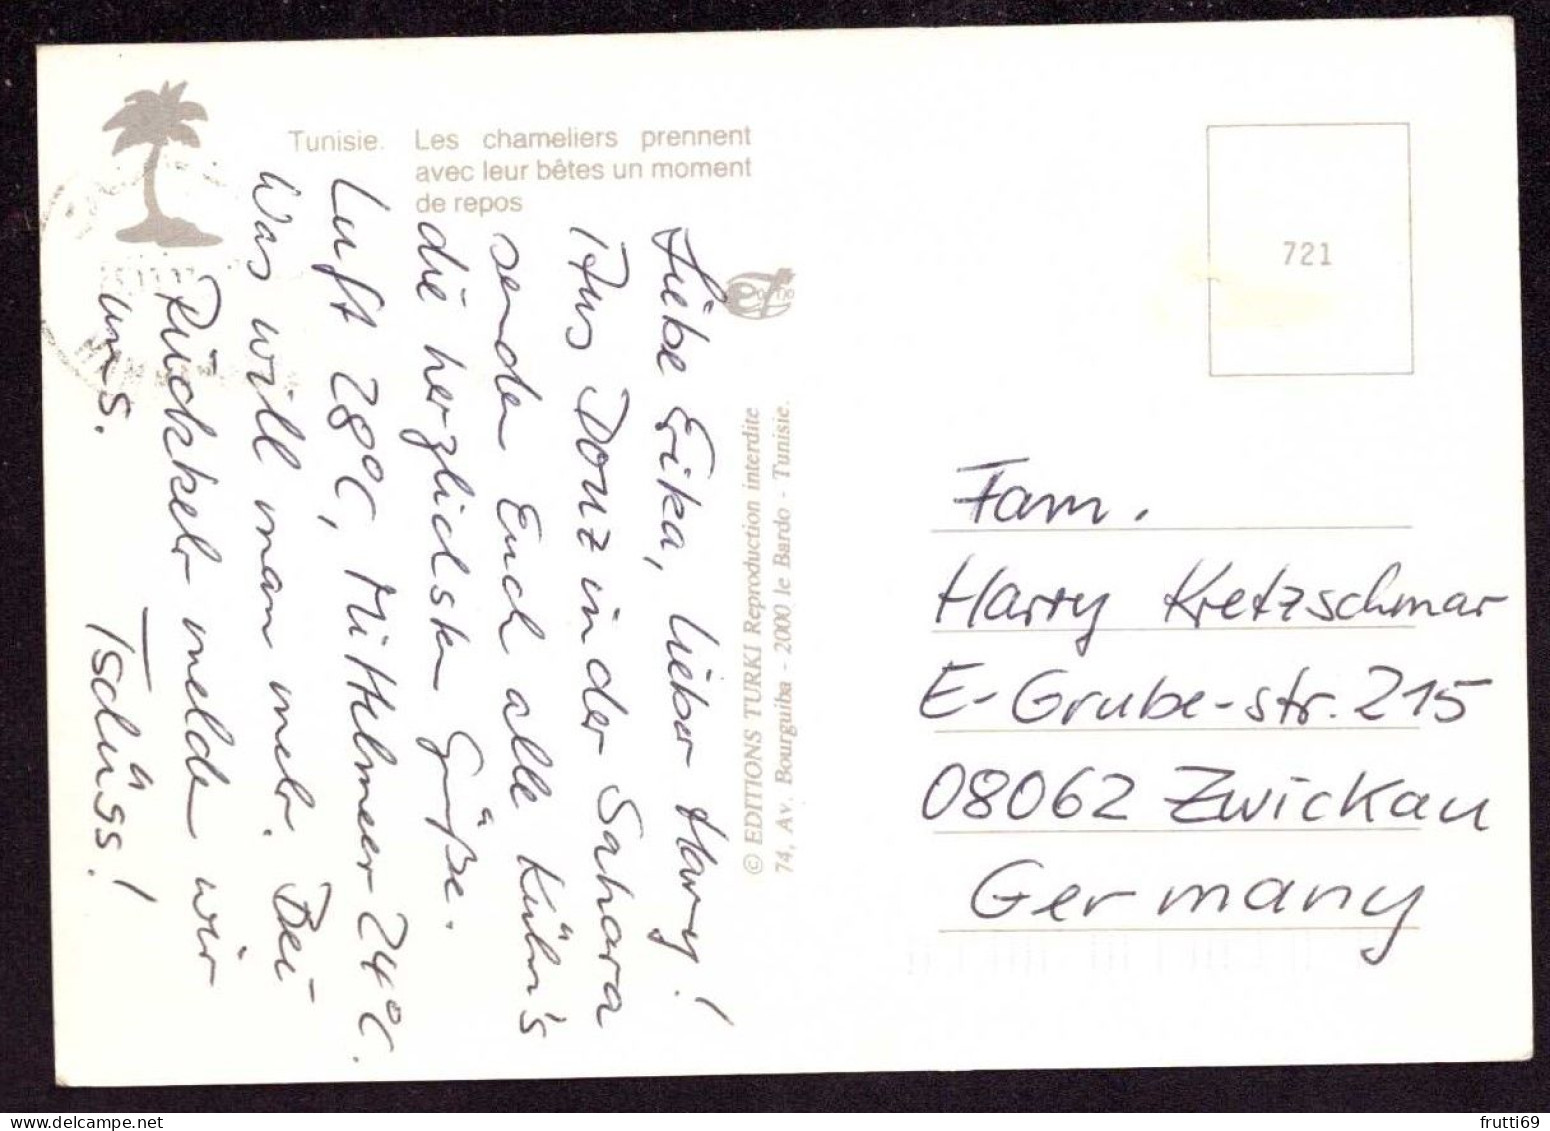 Tunisie. Les chameliers prennent
avec leur bêtes un moment
de repos
Liebe Erika, lieber Harry!
Aus Douz in der Sahara
senden Euch alle Kühn's
die herzlichsten Grüße.
Luft 28°C, Mittelmeer 24°C.
Was will man mehr. Bei
Rückkehr melden wir
uns.
Tschüss!
© EDITIONS TURKI Reproduction interdite
74, Av. Bourguiba - 2000 le Bardo - Tunisie.
721
Fam.
Harry Kretzschmar
E-Grube-str. 215
08062 Zwickau
Germany
frutti69